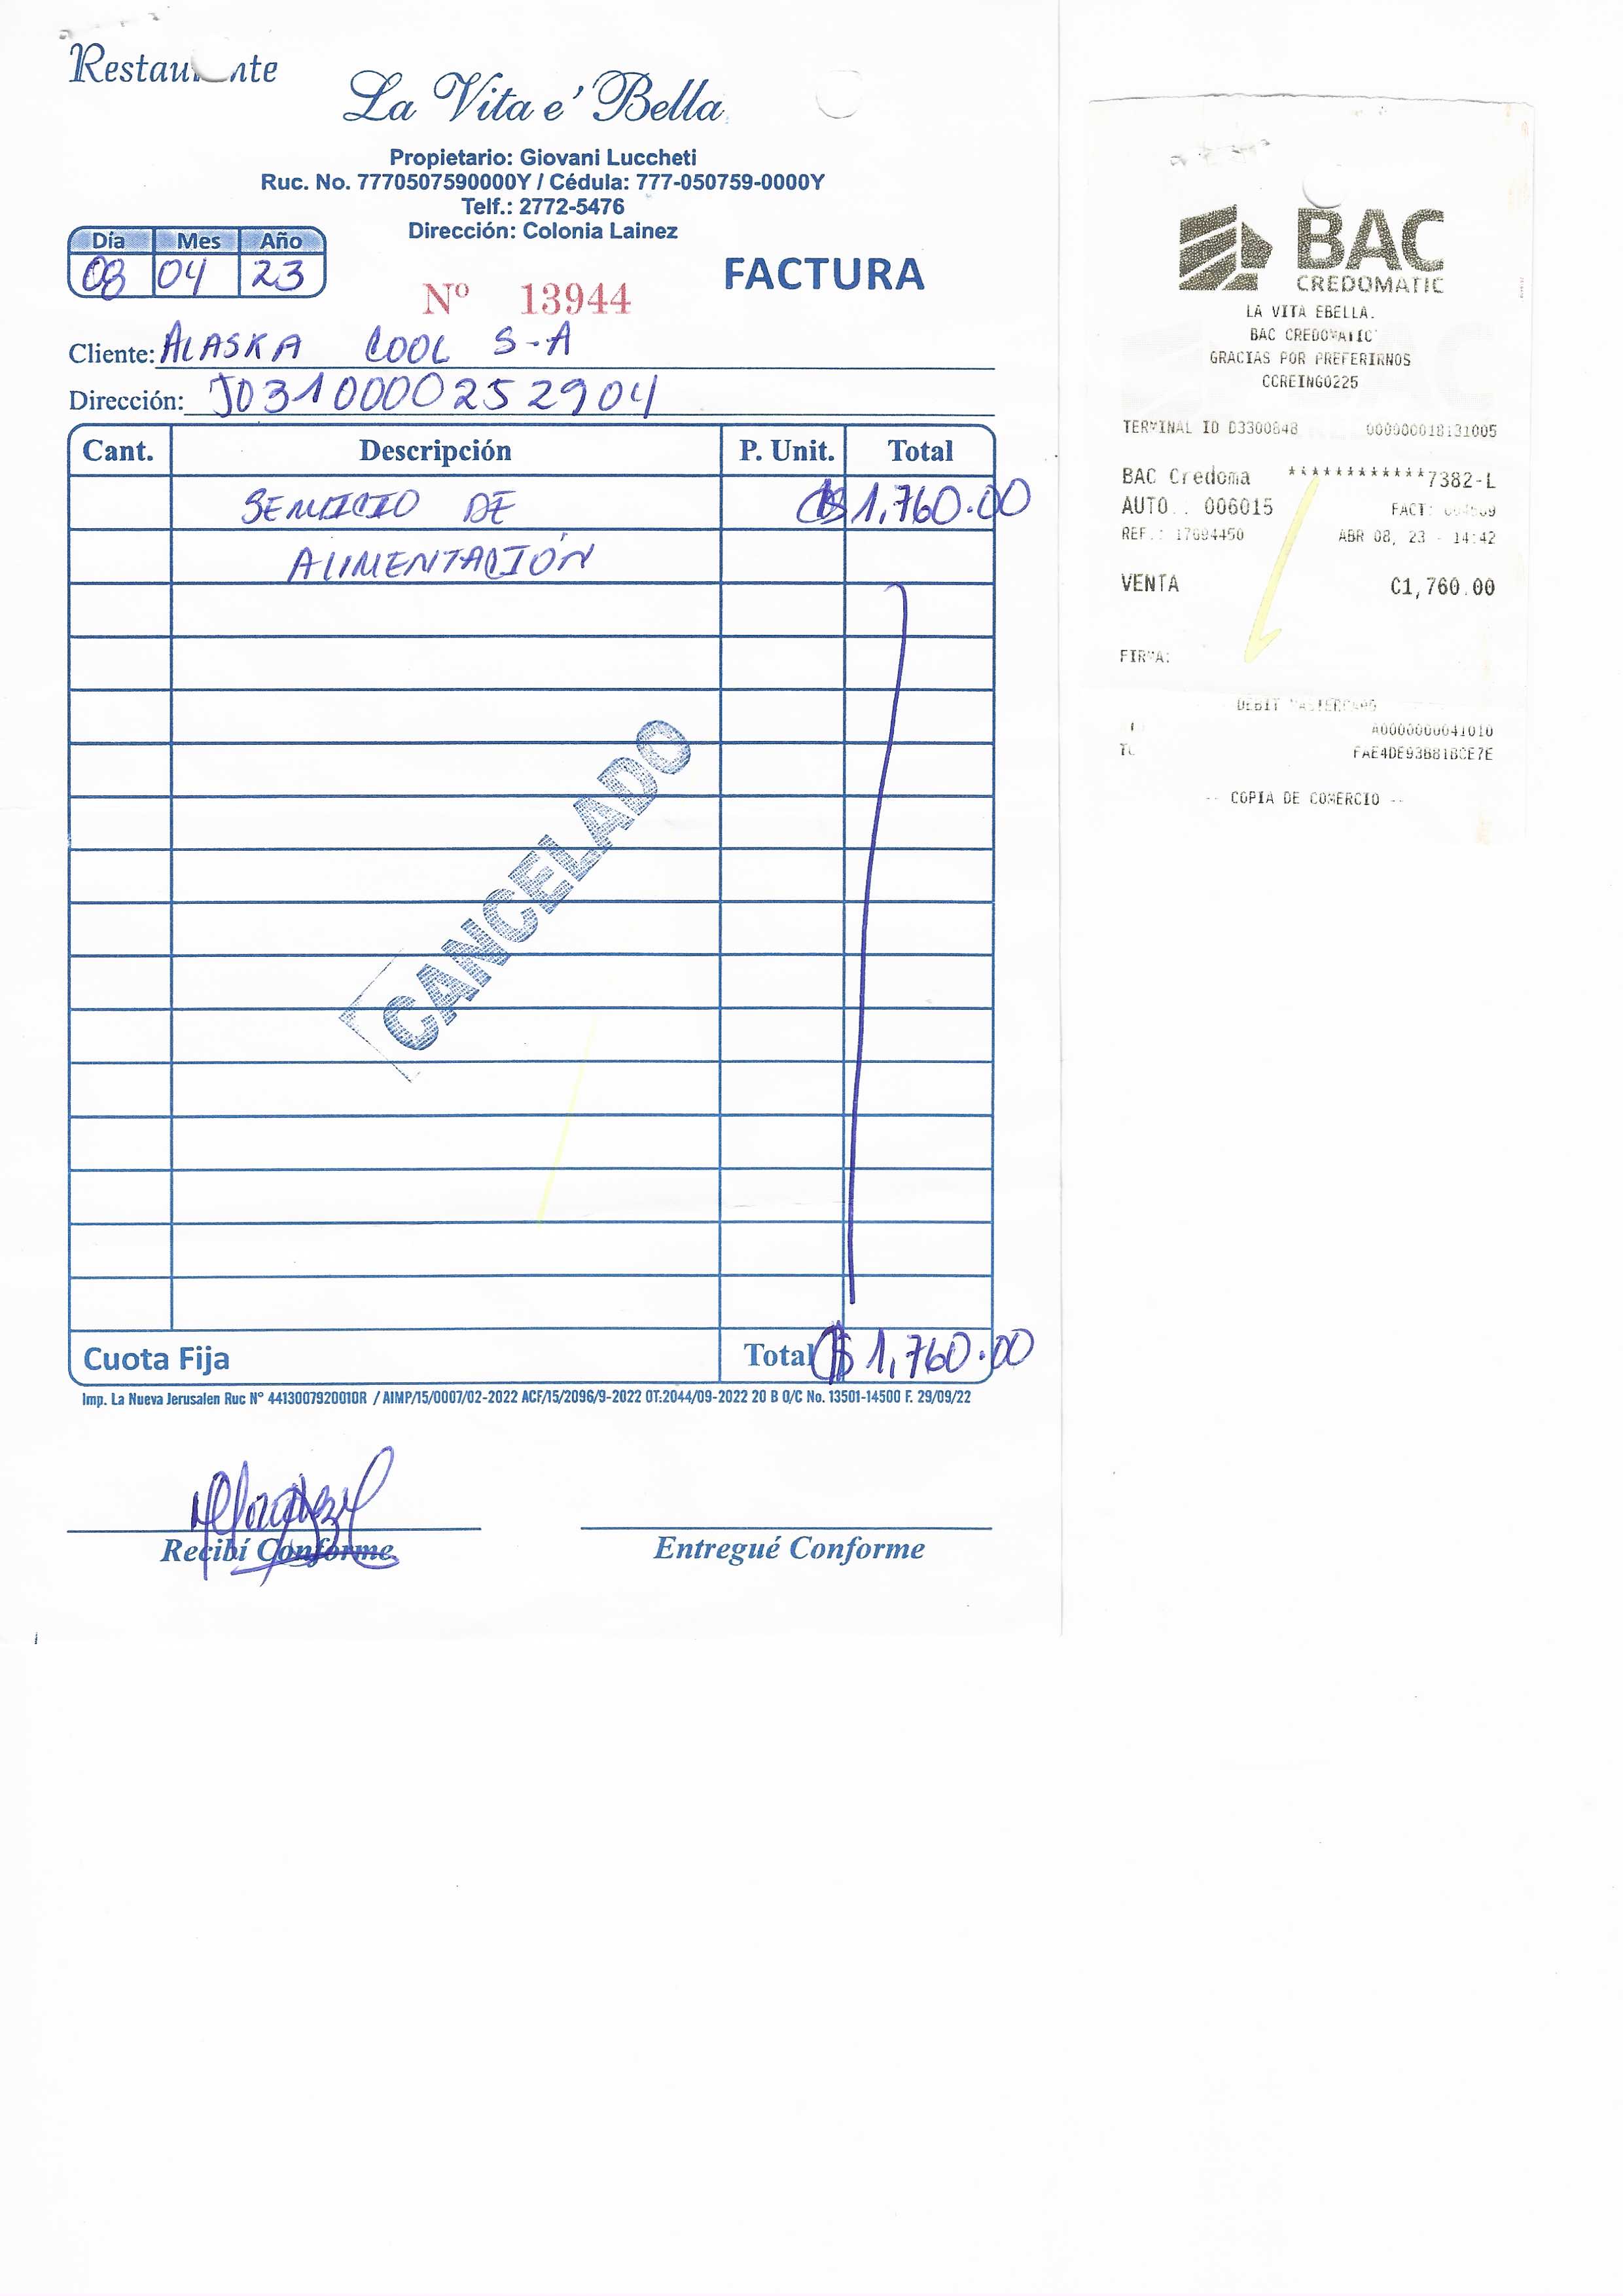 Restaurante
La Vita e' Bella
Propietario: Giovani Luccheti
Ruc. No. 7770507590000Y / Cédula: 777-050759-0000Y
Telf.: 2772-5476
Dirección: Colonia Lainez
Día Mes Año
08 04 23
FACTURA
Nº 13944
Cliente: ALASKA COOL S-A
Dirección: J0310000252904
Cant. Descripción P. Unit. Total
SERVICIO DE C$ 1,760.00
ALIMENTACIÓN
CANCELADO
Cuota Fija Total C$ 1,760.00
Imp. La Nueva Jerusalen Ruc N° 4413007920010R / AIMP/15/0007/02-2022 ACF/15/2096/9-2022 OT:2044/09-2022 20 B O/C No. 13501-14500 F. 29/09/22
Recibí Conforme
Entregué Conforme
BAC
CREDOMATIC
LA VITA EBELLA.
BAC CREDOMATIC
GRACIAS POR PREFERIRNOS
CCREING0225
TERMINAL ID D3300848 000000018131005
BAC Credoma ************7382-L
AUTO.: 006015 FACT:
REF.: 17694450 ABR 08, 23 - 14:42
VENTA C1,760.00
FIRMA:
DEBIT MASTERCARD
A0000000041010
FAE4DE93B81BCE7E
-- COPIA DE COMERCIO --